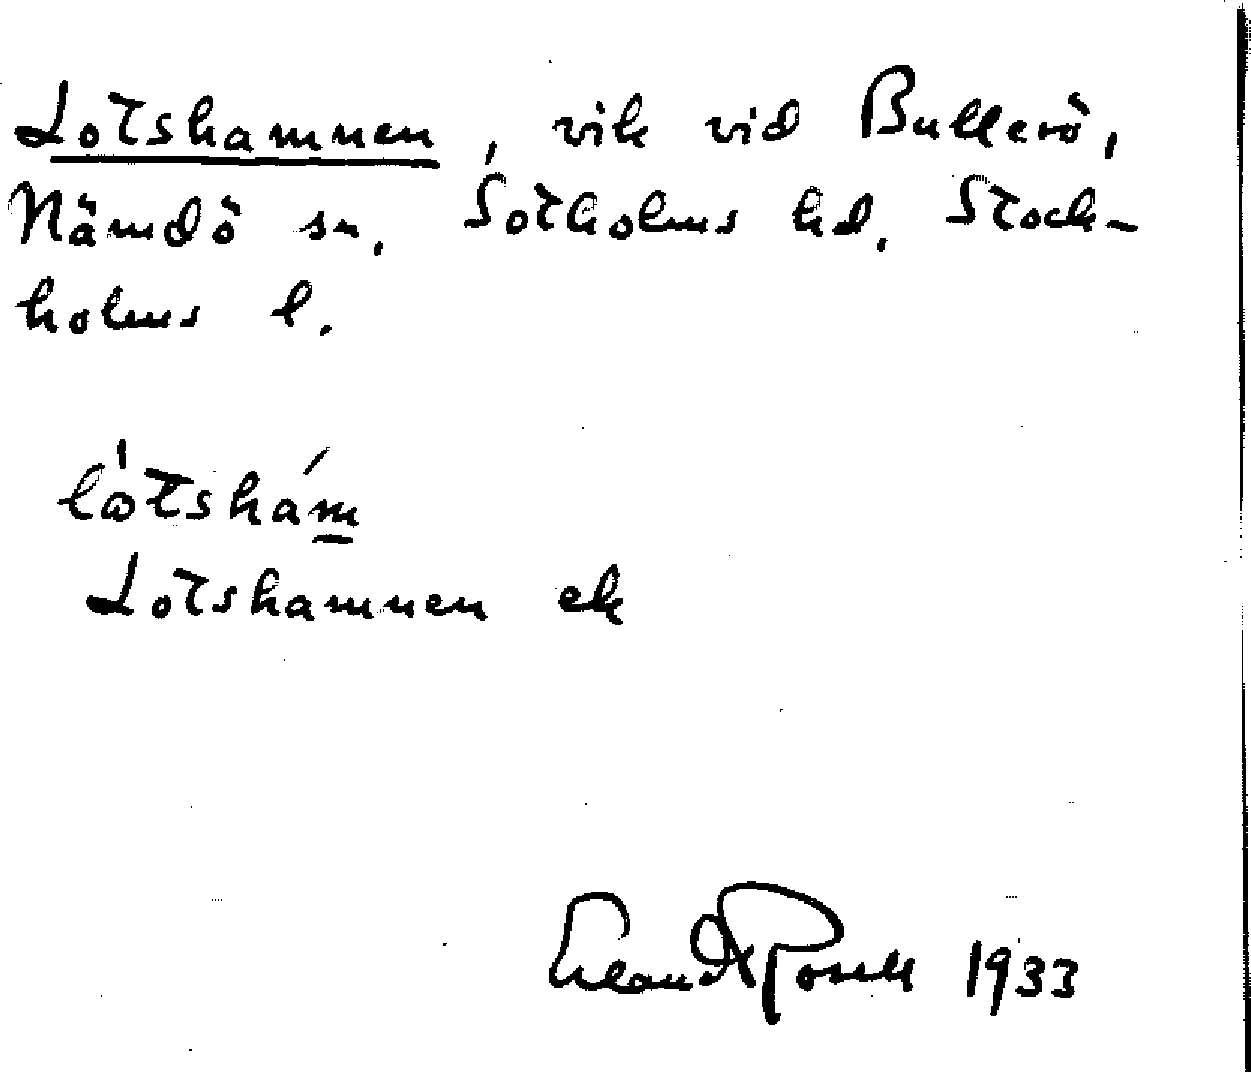 Lotshamnen, vik vid Bullerö,
Nämdö sn, Sotholms hd, Stock-
holms l.
lòtshám
Lotshamnen ek
Erland Rosell 1933